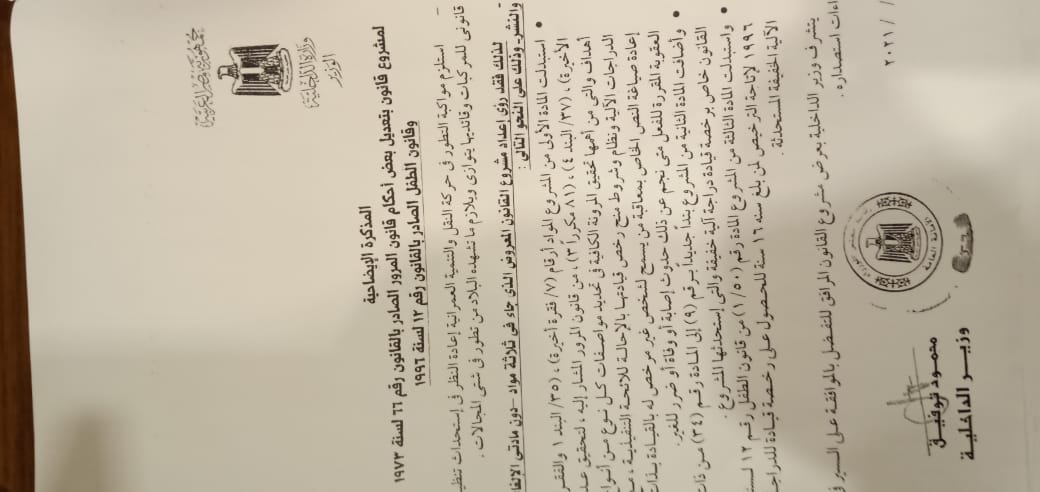 جمهورية مصر العربية
وزارة الداخلية
الوزير
المذكرة الإيضاحية
لمشروع قانون بتعديل بعض أحكام قانون المرور الصادر بالقانون رقم ٦٦ لسنة ١٩٧٣
وقانون الطفل الصادر بالقانون رقم ١٢ لسنة ١٩٩٦
استلزم مواكبة التطور فى حركة النقل والتنمية العمرانية إعادة النظر فى إستحداث تنظيـ
قانونى للمركبات وقائديها يتوازى ويلازم ما تشهده البلاد من تطور فى شتى المجالات .
- لذلك فقد رؤى إعداد مشروع القانون المعروض الذى جاء فى ثلاثة مواد -دون مادتى الإلغا
والنشر- وذلك على النحو التالى :
• استبدلت المادة الأولى من المشروع المواد أرقام (٧/ فقرة أخيرة) ، (٣٥/ البند ١ والفقر
الأخيرة) ، (٣٧/ البند ٤) ، (٨١ مكرراً ٣) ، من قانون المرور المشار إليه ، لتحقيق عد
أهداف والتى من أهمها تحقيق المرونة الكافية فى تحديد مواصفات كل نوع من أنوا
الدراجات الآلية ونظام وشروط منح رخص قيادتها بالإحالة للائحة التنفيذية ،
إعادة صياغة النص الخاص بمعاقبة من يسمح لشخص غير مرخص له بالقيادة بذات
العقوبة المقررة للفعل متى نجم عن ذلك حدوث إصابة أو وفاة أو ضرر للغير.
• وأضافت المادة الثانية من المشروع بنداً جديداً برقم (٩) إلى المادة رقم (٣٤) من ذات
القانون خاص برخصة قيادة دراجة آلية خفيفة والتى إستحدثها المشروع .
• واستبدلت المادة الثالثة من المشروع المادة رقم (١/٥٠) من قانون الطفل رقم ١٢ لسنـ
١٩٩٦ لإتاحة الترخيص لمن بلغ سنه ١٦ سنة للحصول على رخصة قيادة للدراجـ
الآلية الخفيفة المستحدثة .
يتشرف وزير الداخلية بعرض مشروع القانون المرافق للتفضل بالموافقة على السير فى
اءات استصداره .
/ / ٢٠٢١
محمود توفيق
وزير الداخلية